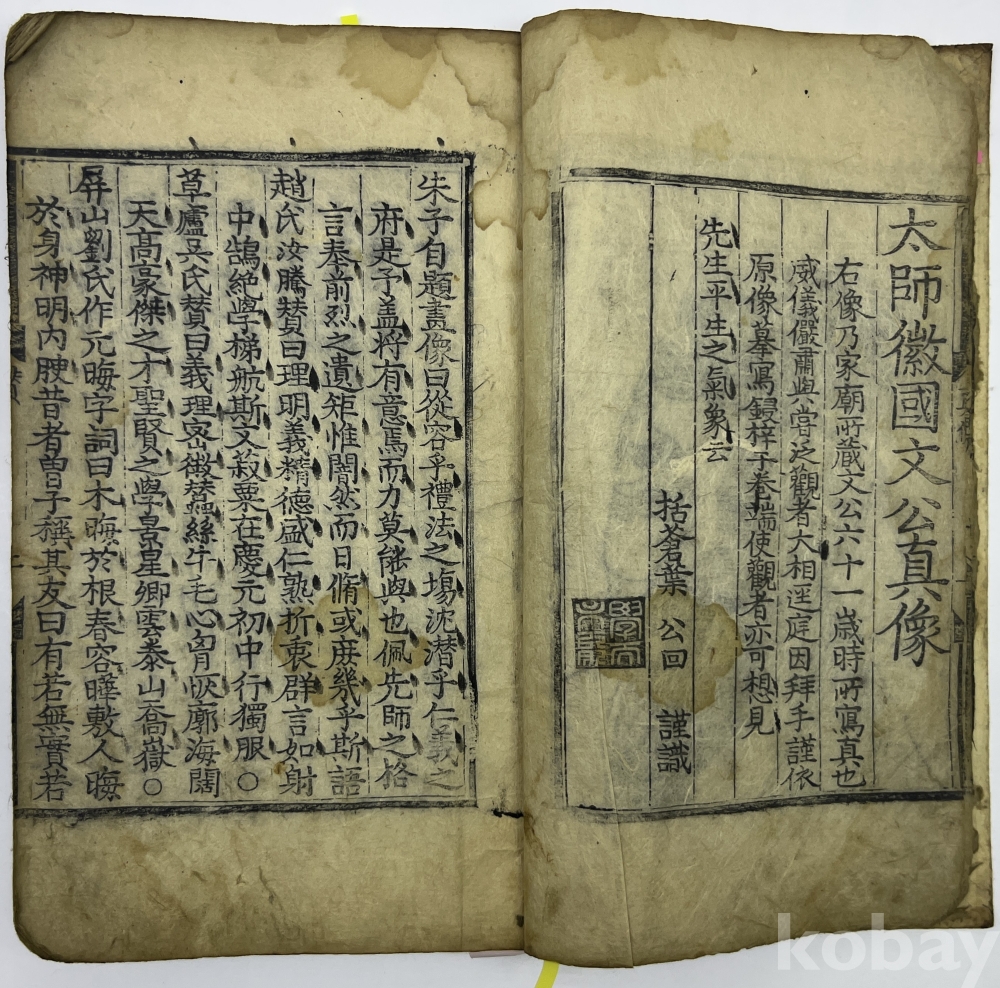 太師徽國文公真像
右像乃家廟所藏文公六十一歲時所寫真也
威儀儼肅與嘗泛觀者大相逕庭因拜手謹依
原像摹寫鋟梓于卷端使觀者亦可想見
先生平生之氣象云
括蒼葉 公回 謹識
朱子自題畫像曰從容乎禮法之場沈潜乎仁義之
府是予盖將有意焉而力莫能與也佩先師之格
言奉前烈之遺矩惟闇然而日脩或庶幾乎斯語
趙氏汝騰賛曰理明義精德盛仁熟折衷群言如射
中鵠絶學梯航斯文菽粟在慶元初中行獨服○
草廬吳氏賛曰義理玄微蠶絲牛毛心胷恢廓海闊
天高豪傑之才聖賢之學景星卿雲泰山喬嶽○
屛山劉氏作元晦字詞曰木晦於根春容曄敷人晦
於身神明内腴昔者曽子稱其友曰有若無實若
kobay